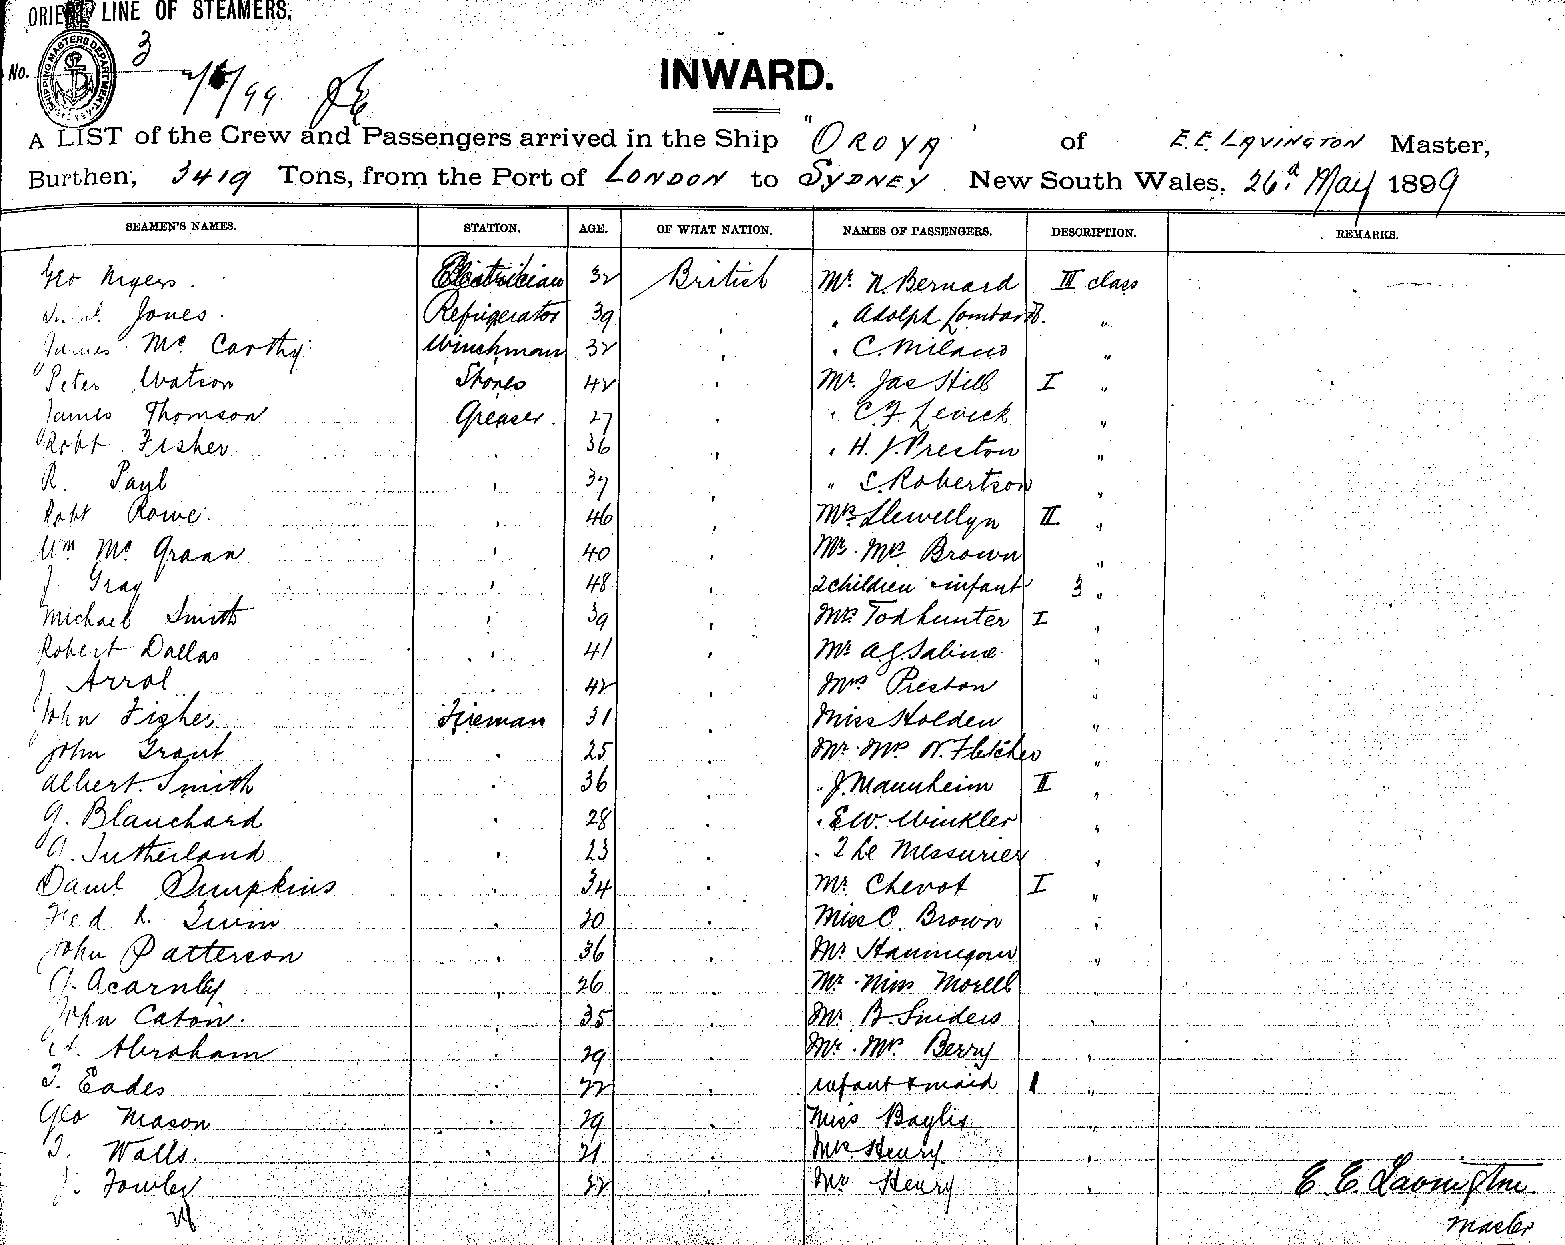 ORIENT LINE OF STEAMERS.
SHIPPING MASTERS DEPARTMENT
No. 3
/99
INWARD.
A LIST of the Crew and Passengers arrived in the Ship "OROYA" of E. E. LAVINGTON Master,
Burthen, 3419 Tons, from the Port of LONDON to SYDNEY New South Wales, 26th May 1899
SEAMEN'S NAMES. STATION. AGE. OF WHAT NATION. NAMES OF PASSENGERS. DESCRIPTION. REMARKS.
Geo Myers. Electrician 32 British Mr. N. Bernard III class
Jones. Refrigerator 39 " Adolph Lombard. "
James Mc Carthy Winchman 32 " C. Milano "
Peter Watson Stores 42 Mr. Jas Hill I "
James Thomson Greaser. 27 " C. F. Levick "
Robt Fisher 36 " H. J. Preston "
R. Paul 37 " C. Robertson "
Robt Rowe. 46 Mrs Llewellyn II "
Wm Mc Grann 40 Mr. Mrs Brown "
J. Gray 48 2 children & infant 3 "
Michael Smith 39 Mrs Todhunter I "
Robert Dallas 41 Mr A G Sabine "
J. Arrol 42 Mrs Preston "
John Fisher Fireman 31 Miss Holden "
John Grant 25 Mr. Mrs W. Fletcher "
Albert Smith 36 " J. Mannheim II "
G. Blanchard 28 " E W. Winkler "
A. Sutherland 23 " T Le Messurier "
Danl Pumpkins 34 Mr. Chevot I "
Fred R. Irwin 30 Miss C. Brown "
John Patterson 36 Mr. "
A. Acarnley 26 Mr. Miss Morell
John Caton. 35 Mr. B. Sniders "
Abraham 29 Mr. Mrs. Berry "
T. Eades 22 infant & maid 1 "
Geo Mason 29 Miss Baylis "
T. Walls. 21 Mrs Henry "
J. Fowler 32 Mr Henry "
E. E. Lavington
Master